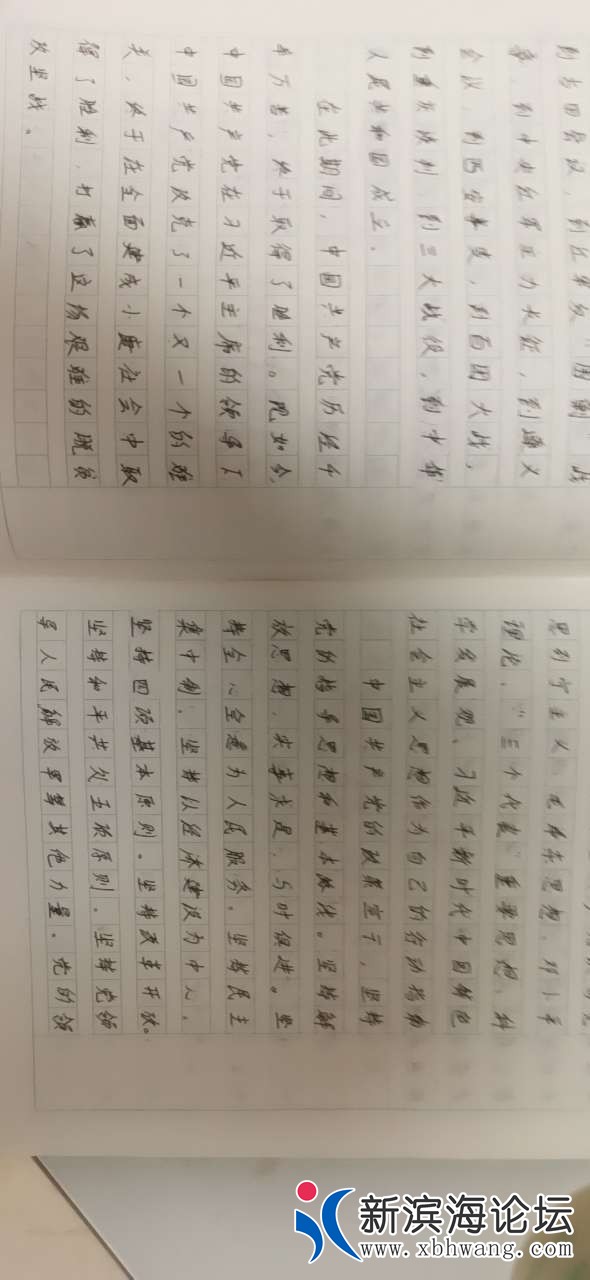 到古田会议、到红军反“围剿”战
争、到中央红军主力长征，到遵义
会议、到西安事变，到百团大战，
到重庆谈判、到三大战役，到中华
人民共和国成立。
在此期间，中国共产党历经千
辛万苦，终于取得了胜利。现如今，
中国共产党在习近平主席的领导下
中国共产党攻克了一个又一个的难
关、终于在全面建成小康社会中取
得了胜利、打赢了这场艰难的脱贫
攻坚战。
思列宁主义、毛泽东思想、邓小平
理论、“三个代表”重要思想、科
学发展观、习近平新时代中国特色
社会主义思想作为自己的行动指南
中国共产党的政策宣于，坚持
党的指导思想和基本路线。坚持解
放思想、实事求是、与时俱进。坚
持全心全意为人民服务。坚持民主
集中制、坚持以经济建设为中心、
坚持四项基本原则。坚持改革开放。
坚持和平共处五项原则、坚持党领
导人民解放军等其他力量。党的领
新滨海论坛
www.xbhwang.com